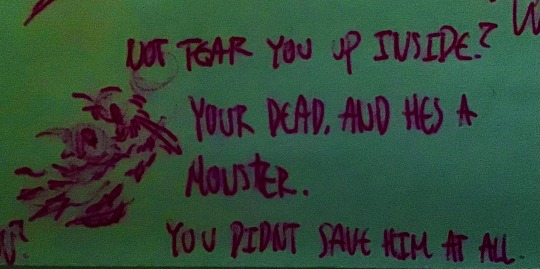 NOT TEAR YOU UP INSIDE?
YOUR DEAD. AND HES A
MONSTER.
YOU DIDNT SAVE HIM AT ALL.